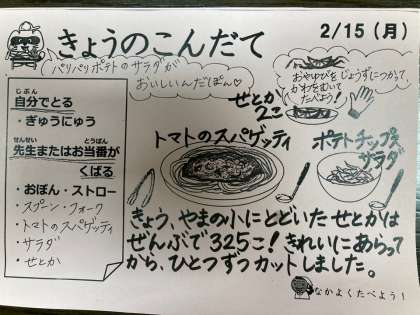 きょうのこんだて
2/15(月)
パリパリポテトのサラダが
おいしいんだぽん♡
おやゆびを
じょうずにつかって
かわをむいて
たべよう!
せとか
2こ
じぶん
自分でとる
・ぎゅうにゅう
せんせい とうばん
先生またはお当番が
くばる
・おぼん・ストロー
・スプーン・フォーク
・トマトのスパゲッティ
・サラダ
・せとか
トマトのスパゲッティ
ポテトチップス
サラダ
きょう、やまの小にとどいた せとかは
ぜんぶで325こ! きれいにあらって
から、ひとつずつカットしました。
なかよくたべよう!